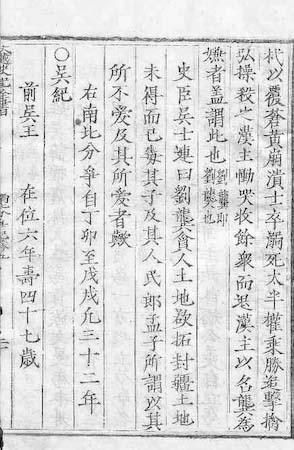 杙以覆蒼黃崩潰士卒溺死太半權乘勝追擊擒
弘操殺之漢主慟哭收餘衆而還漢主以名龔爲
嫌者盖謂此也劉龔即
劉龑也
史臣吳士連曰劉龔貪人土地欲拓封疆土地
未得而已喪其子及其人民郎孟子所謂以其
所不愛及其所愛者歟
右南北分爭自丁卯至戊戌凡三十二年
○吳紀
前吳王 在位六年壽四十七歲